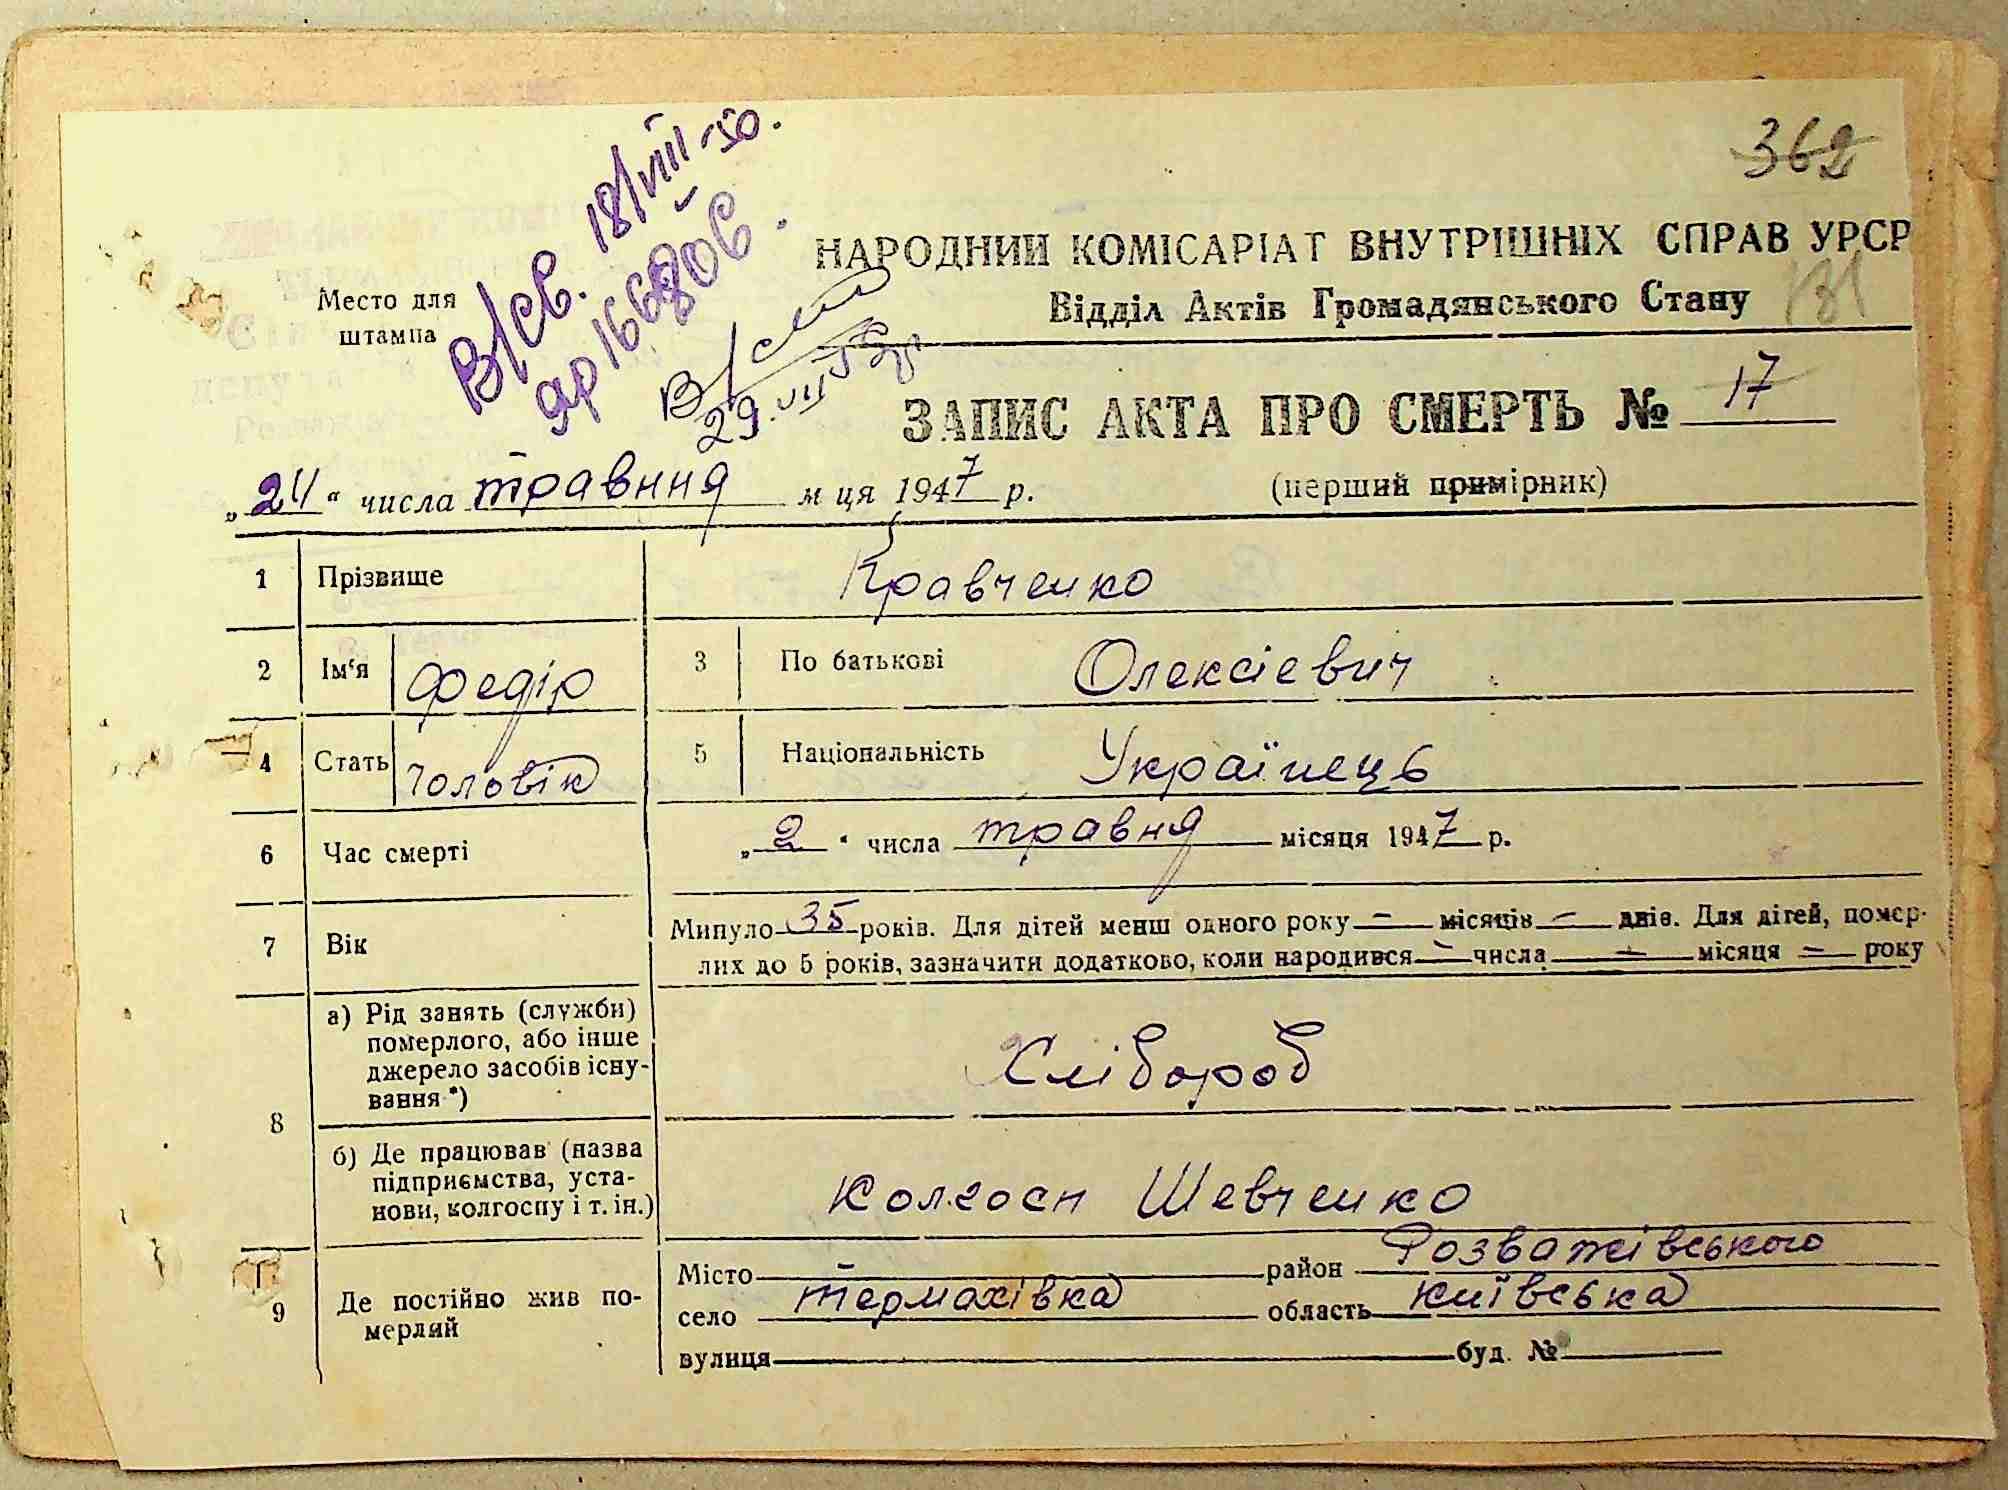 362
В/св. 18/VIII-50.
ЯР 166806.
НАРОДНИЙ КОМІСАРІАТ ВНУТРІШНІХ СПРАВ УРСР
Место для
штампа
Відділ Актів Громадянського Стану
181
29.VII
ЗАПИС АКТА ПРО СМЕРТЬ № 17
„24“ числа травння м ця 1947 р. (перший примірник)
1 Прізвище Кравченко
2 Ім‘я Федір 3 По батькові Олексієвич
4 Стать Чоловік 5 Національність Українець
6 Час смерті „2“ числа травня місяця 1947 р.
7 Вік Минуло 35 років. Для дітей менш одного року – місяців – днів. Для дітей, помер-
лих до 5 років, зазначити додатково, коли народився – числа – місяця – року
8 а) Рід занять (служби)
померлого, або інше
джерело засобів існу-
вання *) Хлібороб
б) Де працював (назва
підприємства, уста-
нови, колгоспу і т. ін.) Колгосп Шевченко
9 Де постійно жив по-
мерлий
Місто – район Розважівського
село Термахівка область Київська
вулиця буд. №